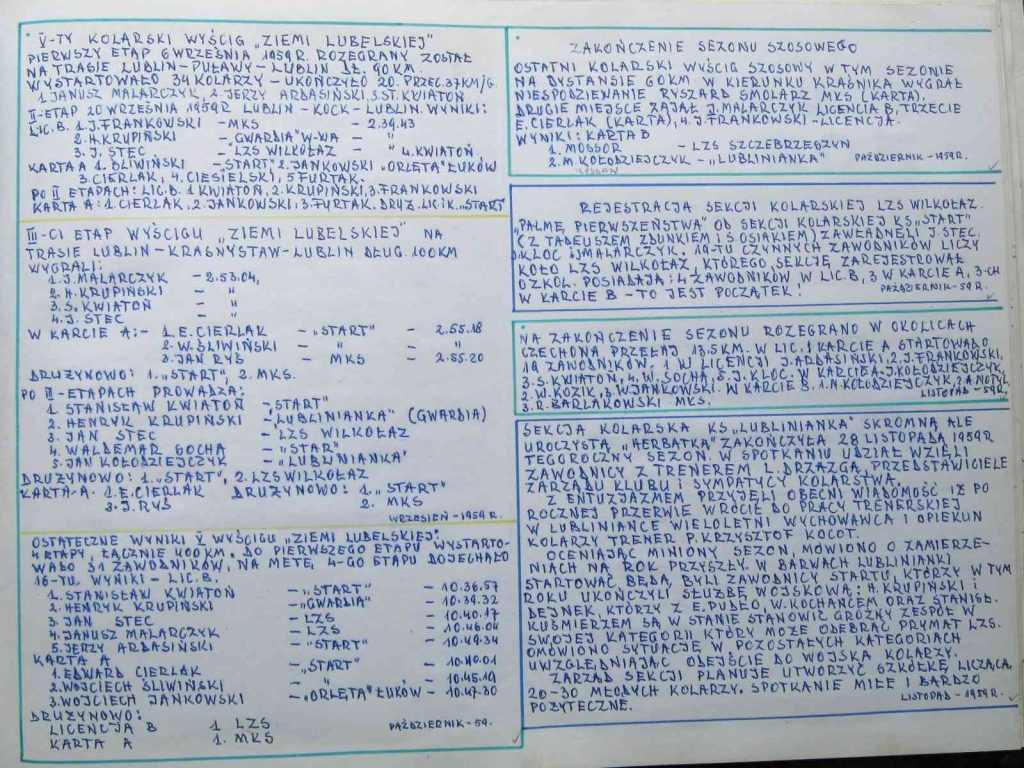 V-TY KOLARSKI WYŚCIG „ZIEMI LUBELSKIEJ"
PIERWSZY ETAP 6 WRZEŚNIA 1959R. ROZEGRANY ZOSTAŁ
NA TRASIE LUBLIN-PUŁAWY-LUBLIN DŁ. 90KM.
WYSTARTOWAŁO 34 KOLARZY-UKOŃCZYŁO 20. PRZEC. 37KM/G.
1. JANUSZ MALARCZYK, 2. JERZY ARDASIŃSKI, 3. ST. KWIATOŃ
II-ETAP 20 WRZEŚNIA 1959R LUBLIN-KOCK-LUBLIN. WYNIKI:
LIC. B. 1. J. FRANKOWSKI - MKS - 2.39.43
2. H. KRUPIŃSKI - „GWARDIA" W-WA - "
3. J. STEC - LZS WILKOŁAZ - " 4. KWIATOŃ.
KARTA A 1. ŚLIWIŃSKI - „START" 2. JANKOWSKI - „ORLĘTA" ŁUKÓW
3. CIERLAK, 4. CIESIELSKI, 5 FURTAK.
PO II ETAPACH: LIC. B. 1. KWIATOŃ, 2. KRUPIŃSKI, 3. FRANKOWSKI
KARTA A: 1. CIERLAK, 2. JANKOWSKI, 3. FURTAK. DRUŻ. LIC i K. „START"
III-CI ETAP WYŚCIGU „ZIEMI LUBELSKIEJ" NA
TRASIE LUBLIN-KRASNYSTAW-LUBLIN DŁUG. 100KM
WYGRALI:
1. J. MALARCZYK - 2.53.04,
2. H. KRUPIŃSKI - "
3. S. KWIATOŃ - "
4. J. STEC - "
W KARCIE A:- 1. E. CIERLAK - „START" - 2.55.18
2. W. ŚLIWIŃSKI - " - "
3. JAN RYŚ - MKS - 2.55.20
DRUŻYNOWO: 1. „START", 2. MKS.
PO III-ETAPACH PROWADZĄ:
1. STANISŁAW KWIATOŃ - „START"
2. HENRYK KRUPIŃSKI - „LUBLINIANKA" (GWARDIA)
3. JAN STEC - LZS WILKOŁAZ
4. WALDEMAR SOCHA - „START"
5. JAN KOŁODZIEJCZYK - „LUBLINIANKA"
DRUŻYNOWO: 1. „START", 2. LZS WILKOŁAZ
KARTA-A. 1. E. CIERLAK DRUŻYNOWO: 1. „START"
3. J. RYŚ 2. MKS
WRZESIEŃ-1959R.
OSTATECZNE WYNIKI V WYŚCIGU „ZIEMI LUBELSKIEJ".
4 ETAPY, ŁĄCZNIE 400KM. DO PIERWSZEGO ETAPU WYSTARTO-
WAŁO 31 ZAWODNIKÓW, NA METĘ, 4-GO ETAPU DOJECHAŁO
16-TU. WYNIKI - LIC. B.
1. STANISŁAW KWIATOŃ - „START" - 10.36.57
2. HENRYK KRUPIŃSKI - „GWARDIA" - 10.39.32
3. JAN STEC - LZS - 10.40.17
4. JANUSZ MALARCZYK - LZS - 10.46.06
5. JERZY ARDASIŃSKI - „START" - 10.49.34
KARTA A
1. EDWARD CIERLAK - „START" - 10.40.01
2. WOJCIECH ŚLIWIŃSKI - " - 10.45.19
3. WOJCIECH JANKOWSKI - „ORLĘTA" ŁUKÓW - 10.47.30
DRUŻYNOWO:
LICENCJA B 1 LZS
KARTA A 1. MKS
PAŹDZIERNIK-59.
ZAKOŃCZENIE SEZONU SZOSOWEGO
OSTATNI KOLARSKI WYŚCIG SZOSOWY W TYM SEZONIE
NA DYSTANSIE 60KM W KIERUNKU KRAŚNIKA WYGRAŁ
NIESPODZIEWANIE RYSZARD SMOLARZ MKS (KARTA),
DRUGIE MIEJSCE ZAJĄŁ J. MALARCZYK LICENCJA B, TRZECIE
E. CIERLAK (KARTA), 4. J. FRANKOWSKI-LICENCJA.
WYNIKI: KARTA B
1. MOSSOR - LZS SZCZEBRZESZYN
2. M. KOŁODZIEJCZYK - „LUBLINIANKA" PAŹDZIERNIK-1959R.
REJESTRACJA SEKCJI KOLARSKIEJ LZS WILKOŁAZ.
„PALMĘ PIERWSZEŃSTWA" OD SEKCJI KOLARSKIEJ KS „START"
(Z TADEUSZEM ZDUNKIEM i S. OSIAKIEM) ZAWŁADNĘLI J. STEC,
J. KLOC i J. MALARCZYK. 10-TU CZYNNYCH ZAWODNIKÓW LICZY
KOŁO LZS WILKOŁAZ, KTÓREGO SEKCJĘ ZAREJESTROWAŁ
OZKOL. POSIADAJĄ: 4 ZAWODNIKÓW W LIC. B, 3 W KARCIE A, 3-CH
W KARCIE B - TO JEST POCZĄTEK! PAŹDZIERNIK-59R.
NA ZAKOŃCZENIE SEZONU ROZEGRANO W OKOLICACH
CZECHOWA PRZEŁAJ 13.5KM. W LIC. i KARCIE A STARTOWAŁO
19 ZAWODNIKÓW. 1 W LICENCJI J. ARDASIŃSKI, 2. J. FRANKOWSKI,
3. S. KWIATOŃ, 4. W. SOCHA, 5. J. KLOC. W KARCIE A J. KOŁODZIEJCZYK,
2. W. KOZIK, 3. W. JANKOWSKI. W KARCIE B. 1. M. KOŁODZIEJCZYK, 2. A. MOTYL,
3. R. BARLAKOWSKI MKS. LISTOPAD-59R.
SEKCJA KOLARSKA KS „LUBLINIANKA" SKROMNĄ ALE
UROCZYSTĄ „HERBATKĄ" ZAKOŃCZYŁA 28 LISTOPADA 1959R
TEGOROCZNY SEZON. W SPOTKANIU UDZIAŁ WZIĘLI
ZAWODNICY Z TRENEREM L. DRZAZGĄ, PRZEDSTAWICIELE
ZARZĄDU KLUBU i SYMPATYCY KOLARSTWA.
Z ENTUZJAZMEM PRZYJĘLI OBECNI WIADOMOŚĆ IŻ PO
ROCZNEJ PRZERWIE WRÓCIŁ DO PRACY TRENERSKIEJ
W LUBLINIANCE WIELOLETNI WYCHOWAWCA I OPIEKUN
KOLARZY TRENER P. KRZYSZTOF KOCOT.
OCENIAJĄC MINIONY SEZON, MÓWIONO O ZAMIERZE-
NIACH NA ROK PRZYSZŁY. W BARWACH LUBLINIANKI
STARTOWAĆ BĘDĄ, BYLI ZAWODNICY STARTU, KTÓRZY W TYM
ROKU UKOŃCZYLI SŁUŻBĘ WOJSKOWĄ: H. KRUPIŃSKI i
DEJNEK, KTÓRZY Z E. PUDŁO, W. KOCHAŃCEM ORAZ STANISŁ.
KUŚMIERZEM SĄ W STANIE STANOWIĆ GROŹNY ZESPÓŁ W
SWOJEJ KATEGORII KTÓRY MOŻE ODEBRAĆ PRYMAT LZS.
OMÓWIONO SYTUACJĘ W POZOSTAŁYCH KATEGORIACH
UWZGLĘDNIAJĄC ODEJŚCIE DO WOJSKA KOLARZY.
ZARZĄD SEKCJI PLANUJE UTWORZYĆ SZKÓŁKĘ LICZĄCĄ,
20-30 MŁODYCH KOLARZY. SPOTKANIE MIŁE I BARDZO
POŻYTECZNE. LISTOPAD-1959R.